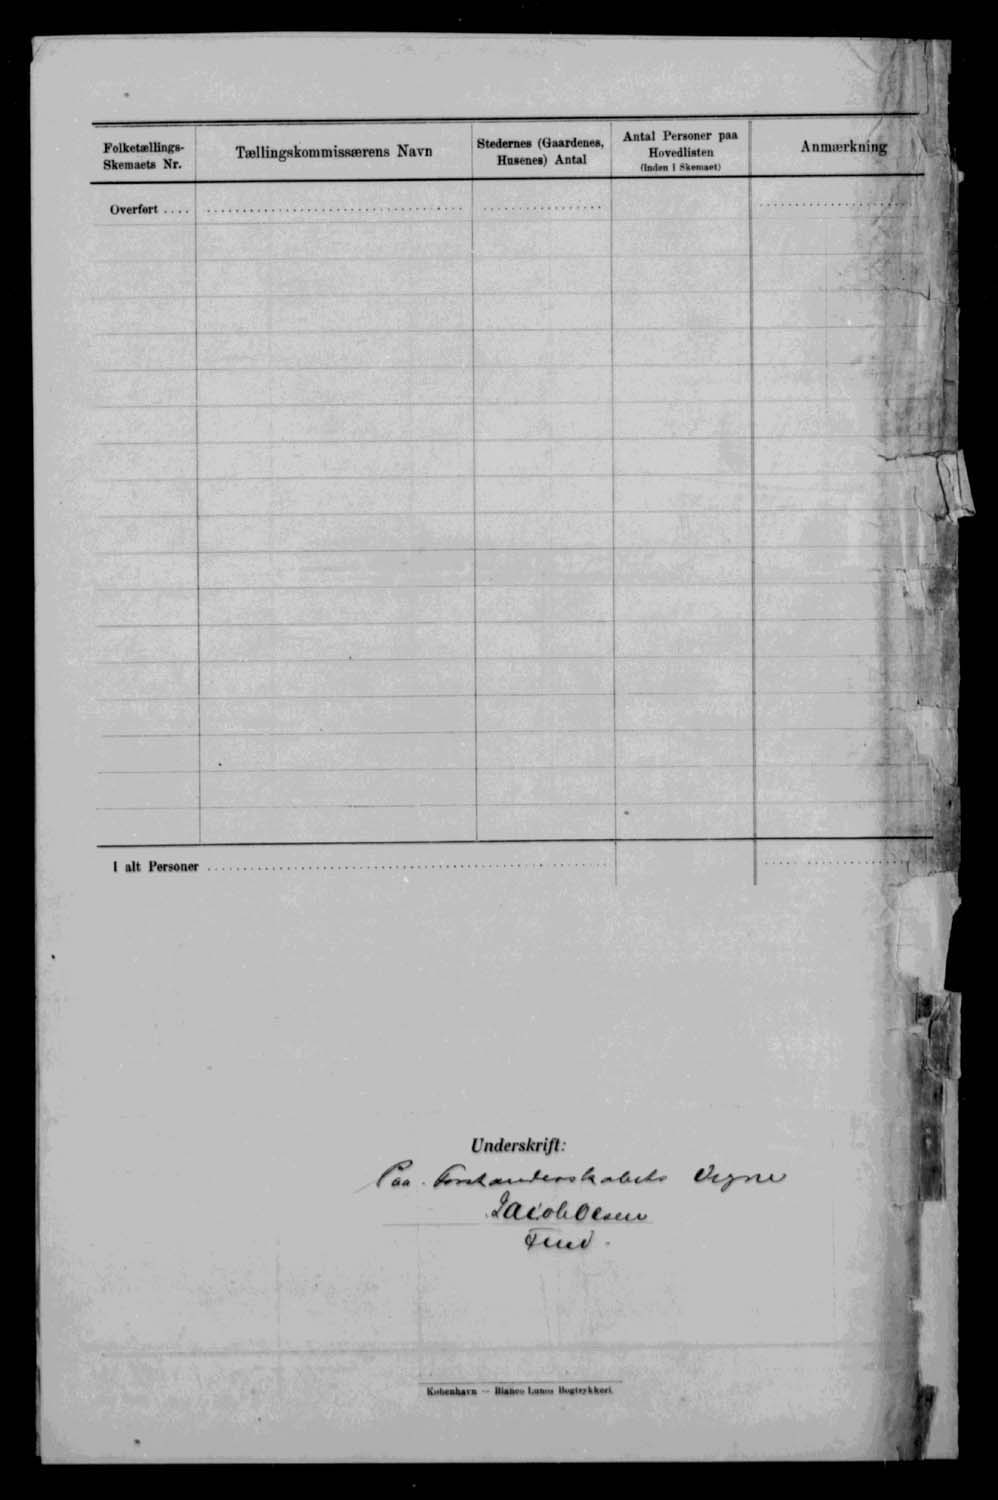 Folketællings- Skemaets Nr.
Tællingskommissærens Navn
Stedernes (Gaardenes, Husenes) Antal
Antal Personer paa Hovedlisten (Inden i Skemaet)
Anmærkning
Overført
I alt Personer
Underskrift:
Paa Forstanderskabets Vegne
Jacob Olsen
København — Bianco Lunos Bogtrykkeri.